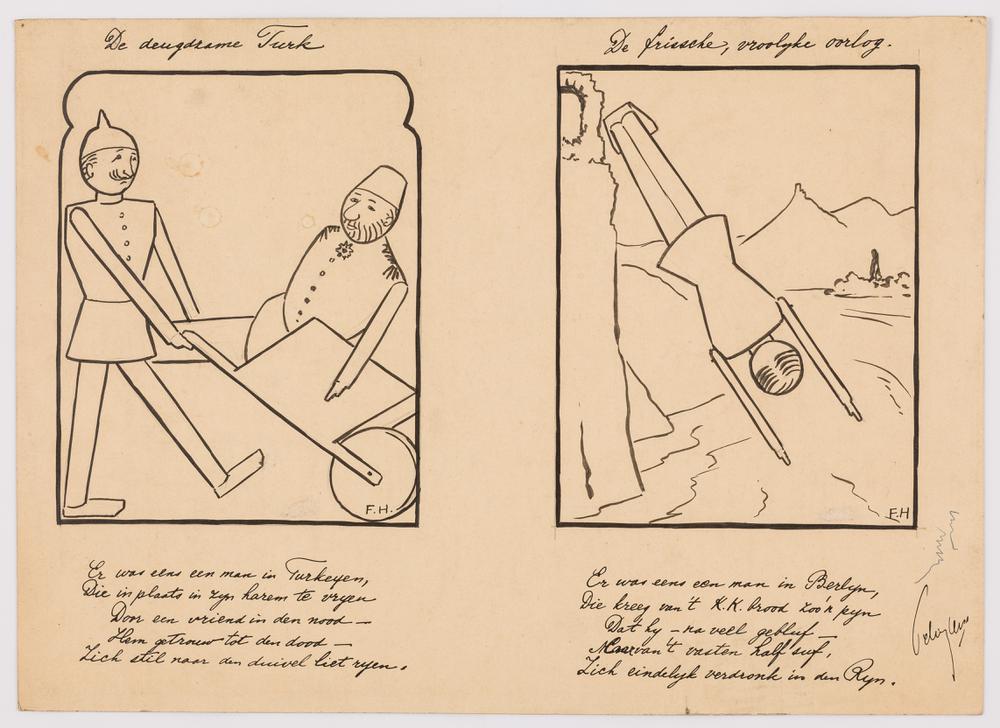 De deugdzame Turk
F.H.
Er was eens een man in Turkeyen,
Die in plaats in zyn harem te vryen
Door een vriend in den nood —
Hem getrouw tot den dood —
Zich stil naar den duivel liet ryen.
De frissche, vroolyke oorlog.
F.H
Er was eens een man in Berlyn,
Die kreeg van't K.K. brood zoo'n pyn
Dat hy — na veel gebluf —
van't vasten half suf,
Zich eindelyk verdronk in den Ryn.